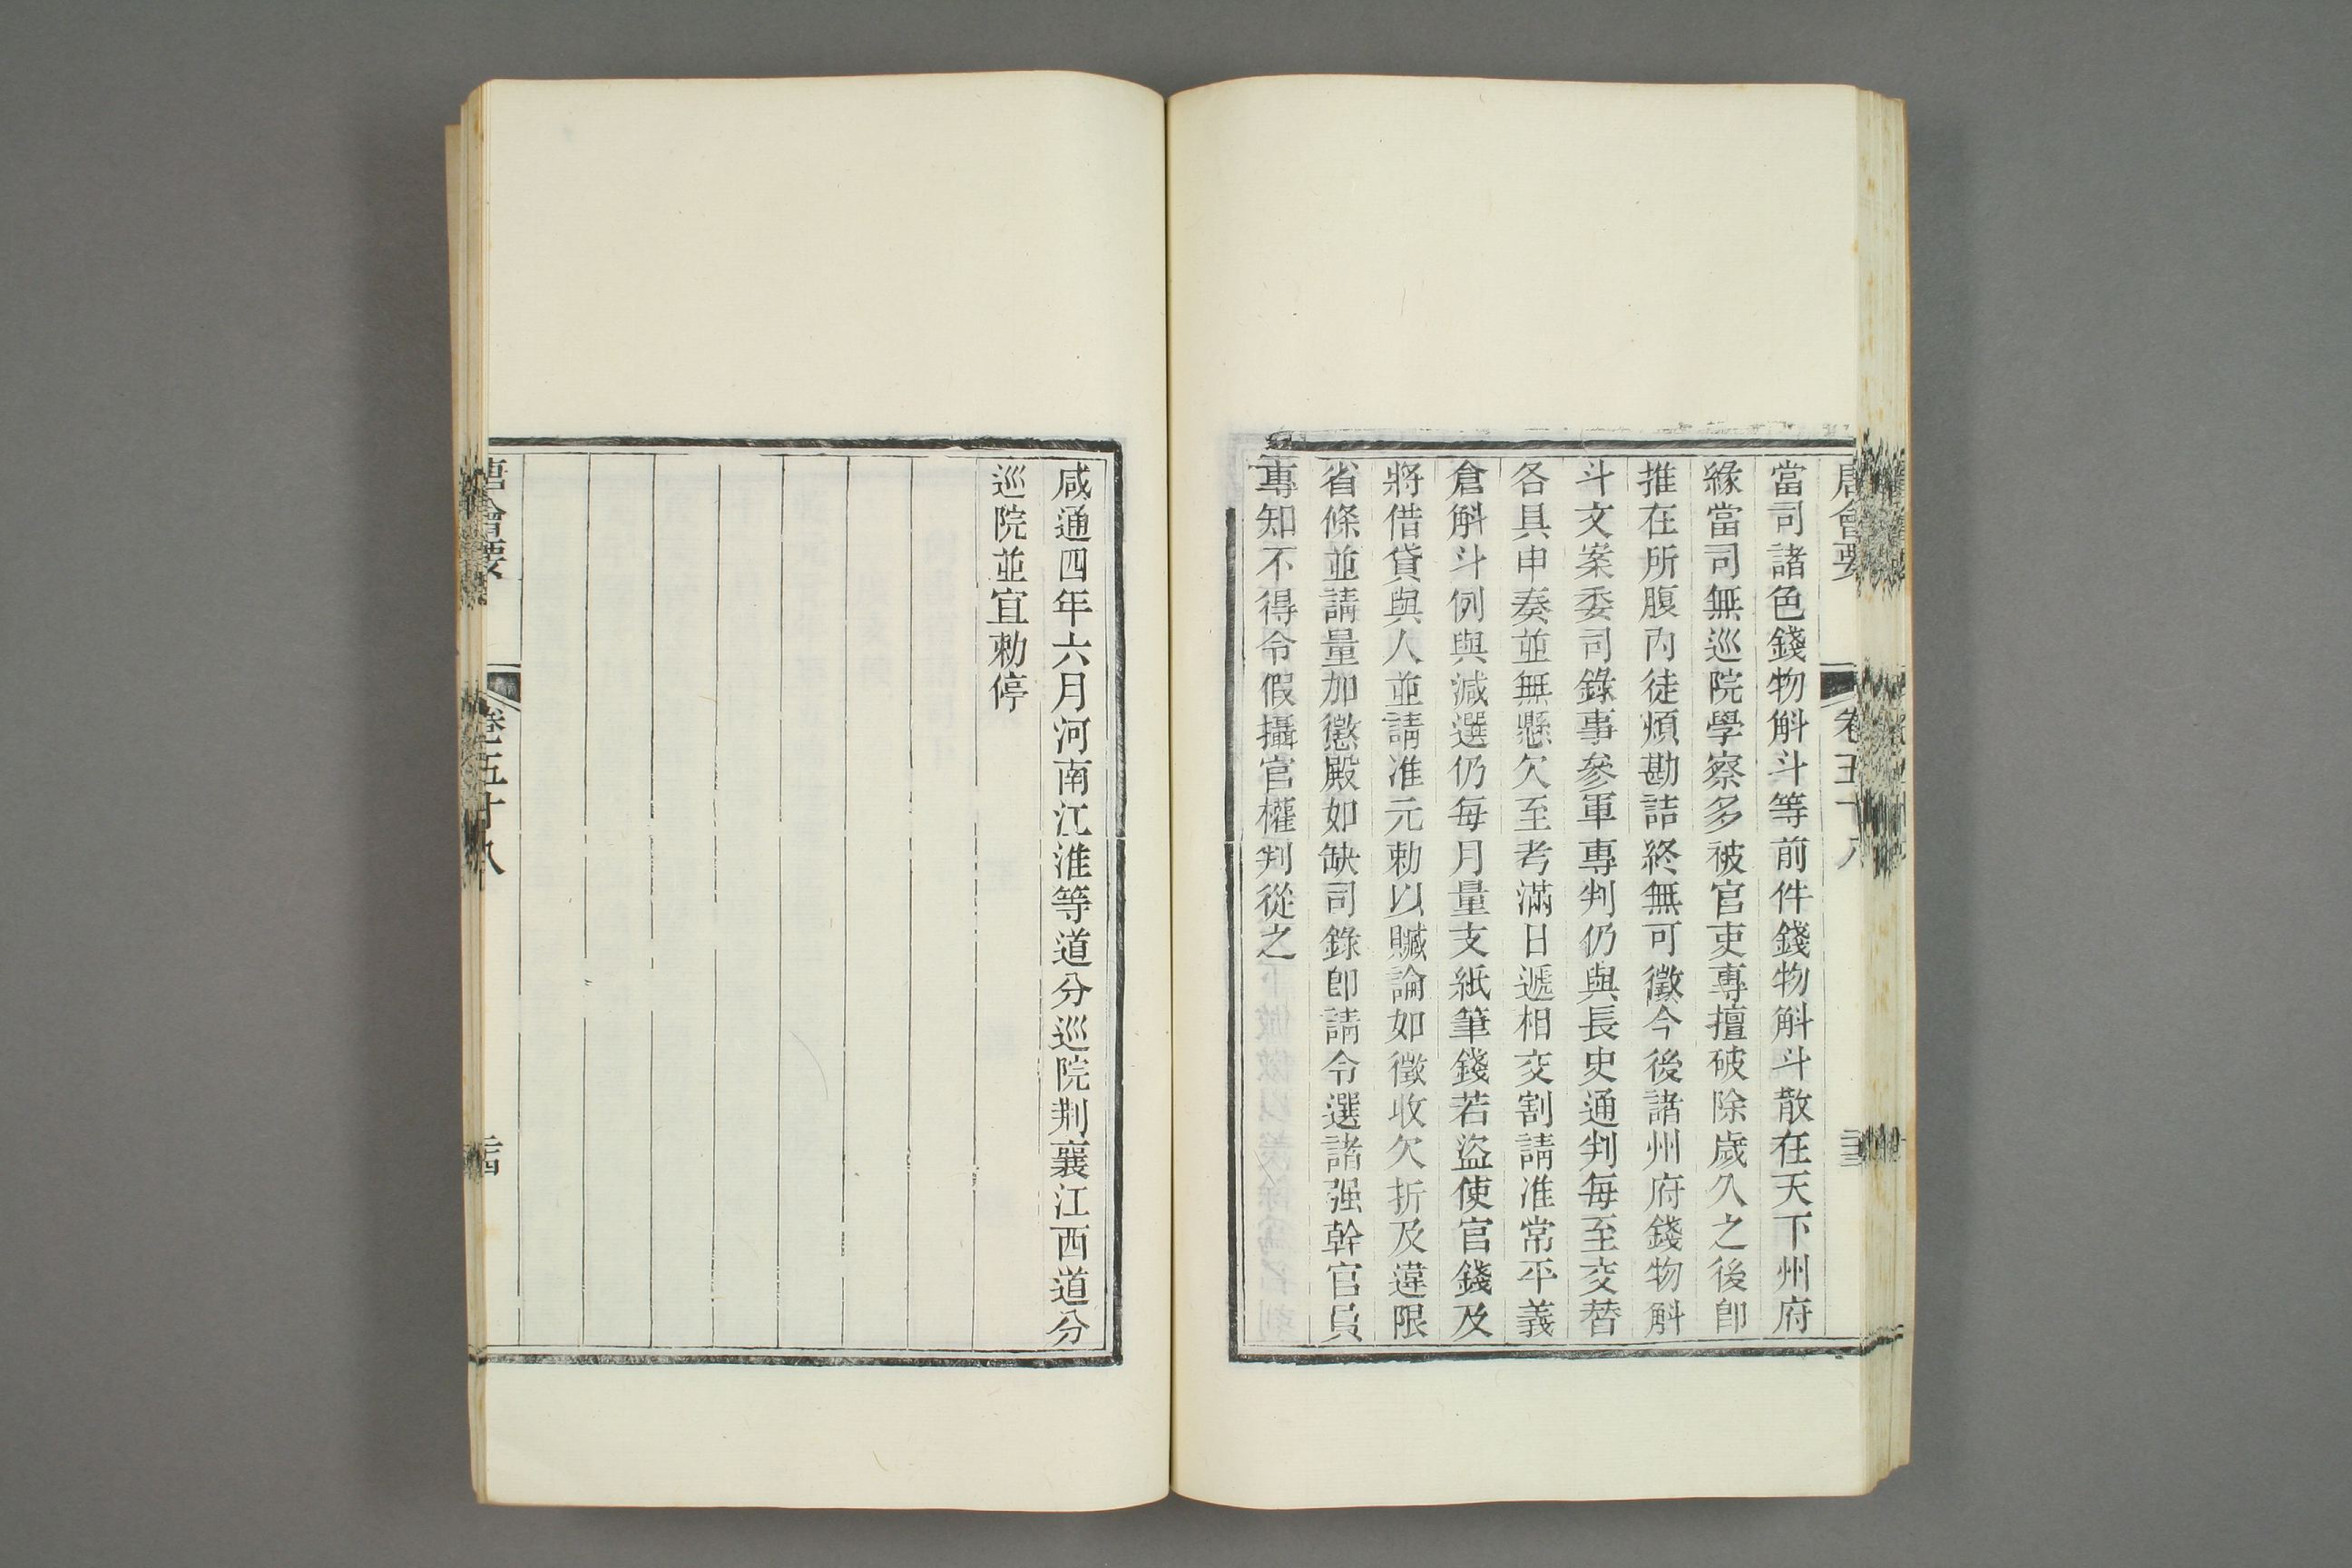 唐會要 卷五十八 三三
當司諸色錢物斛斗等前件錢物斛斗散在天下州府
緣當司無巡院學察多被官吏專擅破除歲久之後卽
推在所腹內徒煩勘詰終無可徵今後諸州府錢物斛
斗文案委司錄事參軍專判仍與長史通判每至交替
各具申奏並無懸欠至考滿日遞相交割請准常平義
倉斛斗例與減選仍每月量支紙筆錢若盜使官錢及
將借貸與人並請准元勅以贓論如徵收欠折及違限
省條並請量加懲殿如缺司錄卽請令選諸强幹官員
專知不得令假攝官權判從之
咸通四年六月河南江淮等道分巡院荆襄江西道分
巡院並宜勅停
唐會要 卷五十八 三四